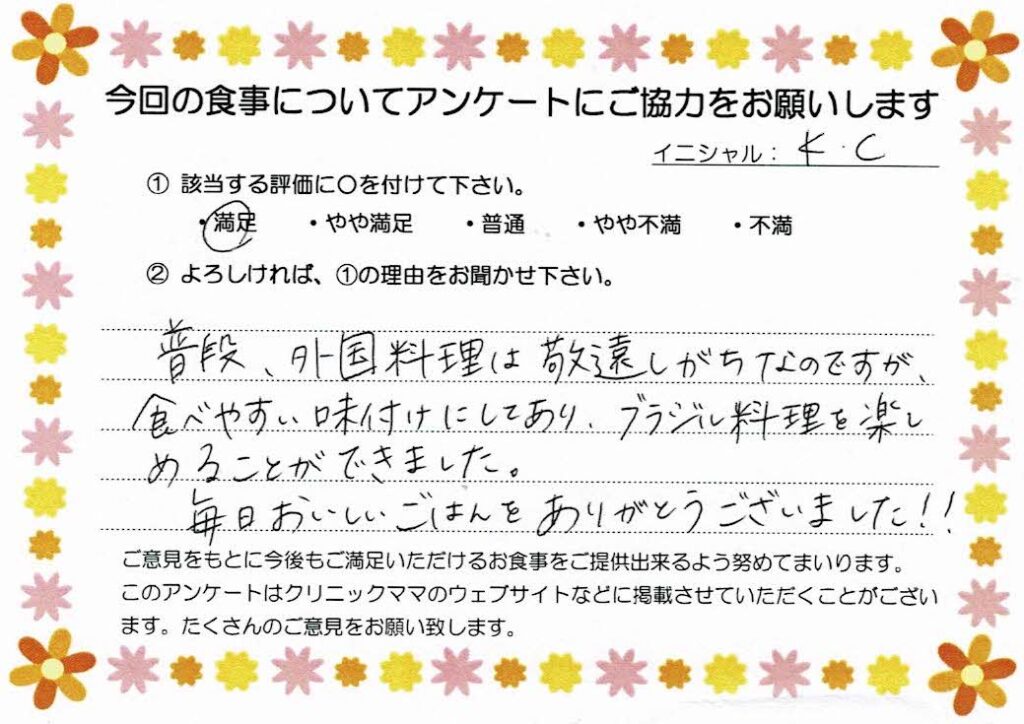 今回の食事についてアンケートにご協力をお願いします
イニシャル： K.C
① 該当する評価に〇を付けて下さい。
・満足 ・やや満足 ・普通 ・やや不満 ・不満
② よろしければ、①の理由をお聞かせ下さい。
普段、外国料理は敬遠しがちなのですが、
食べやすい味付けにしてあり、ブラジル料理を楽し
めることができました。
毎日おいしいごはんをありがとうございました!!
ご意見をもとに今後もご満足いただけるお食事をご提供出来るよう努めてまいります。
このアンケートはクリニックママのウェブサイトなどに掲載させていただくことがござい
ます。たくさんのご意見をお願い致します。